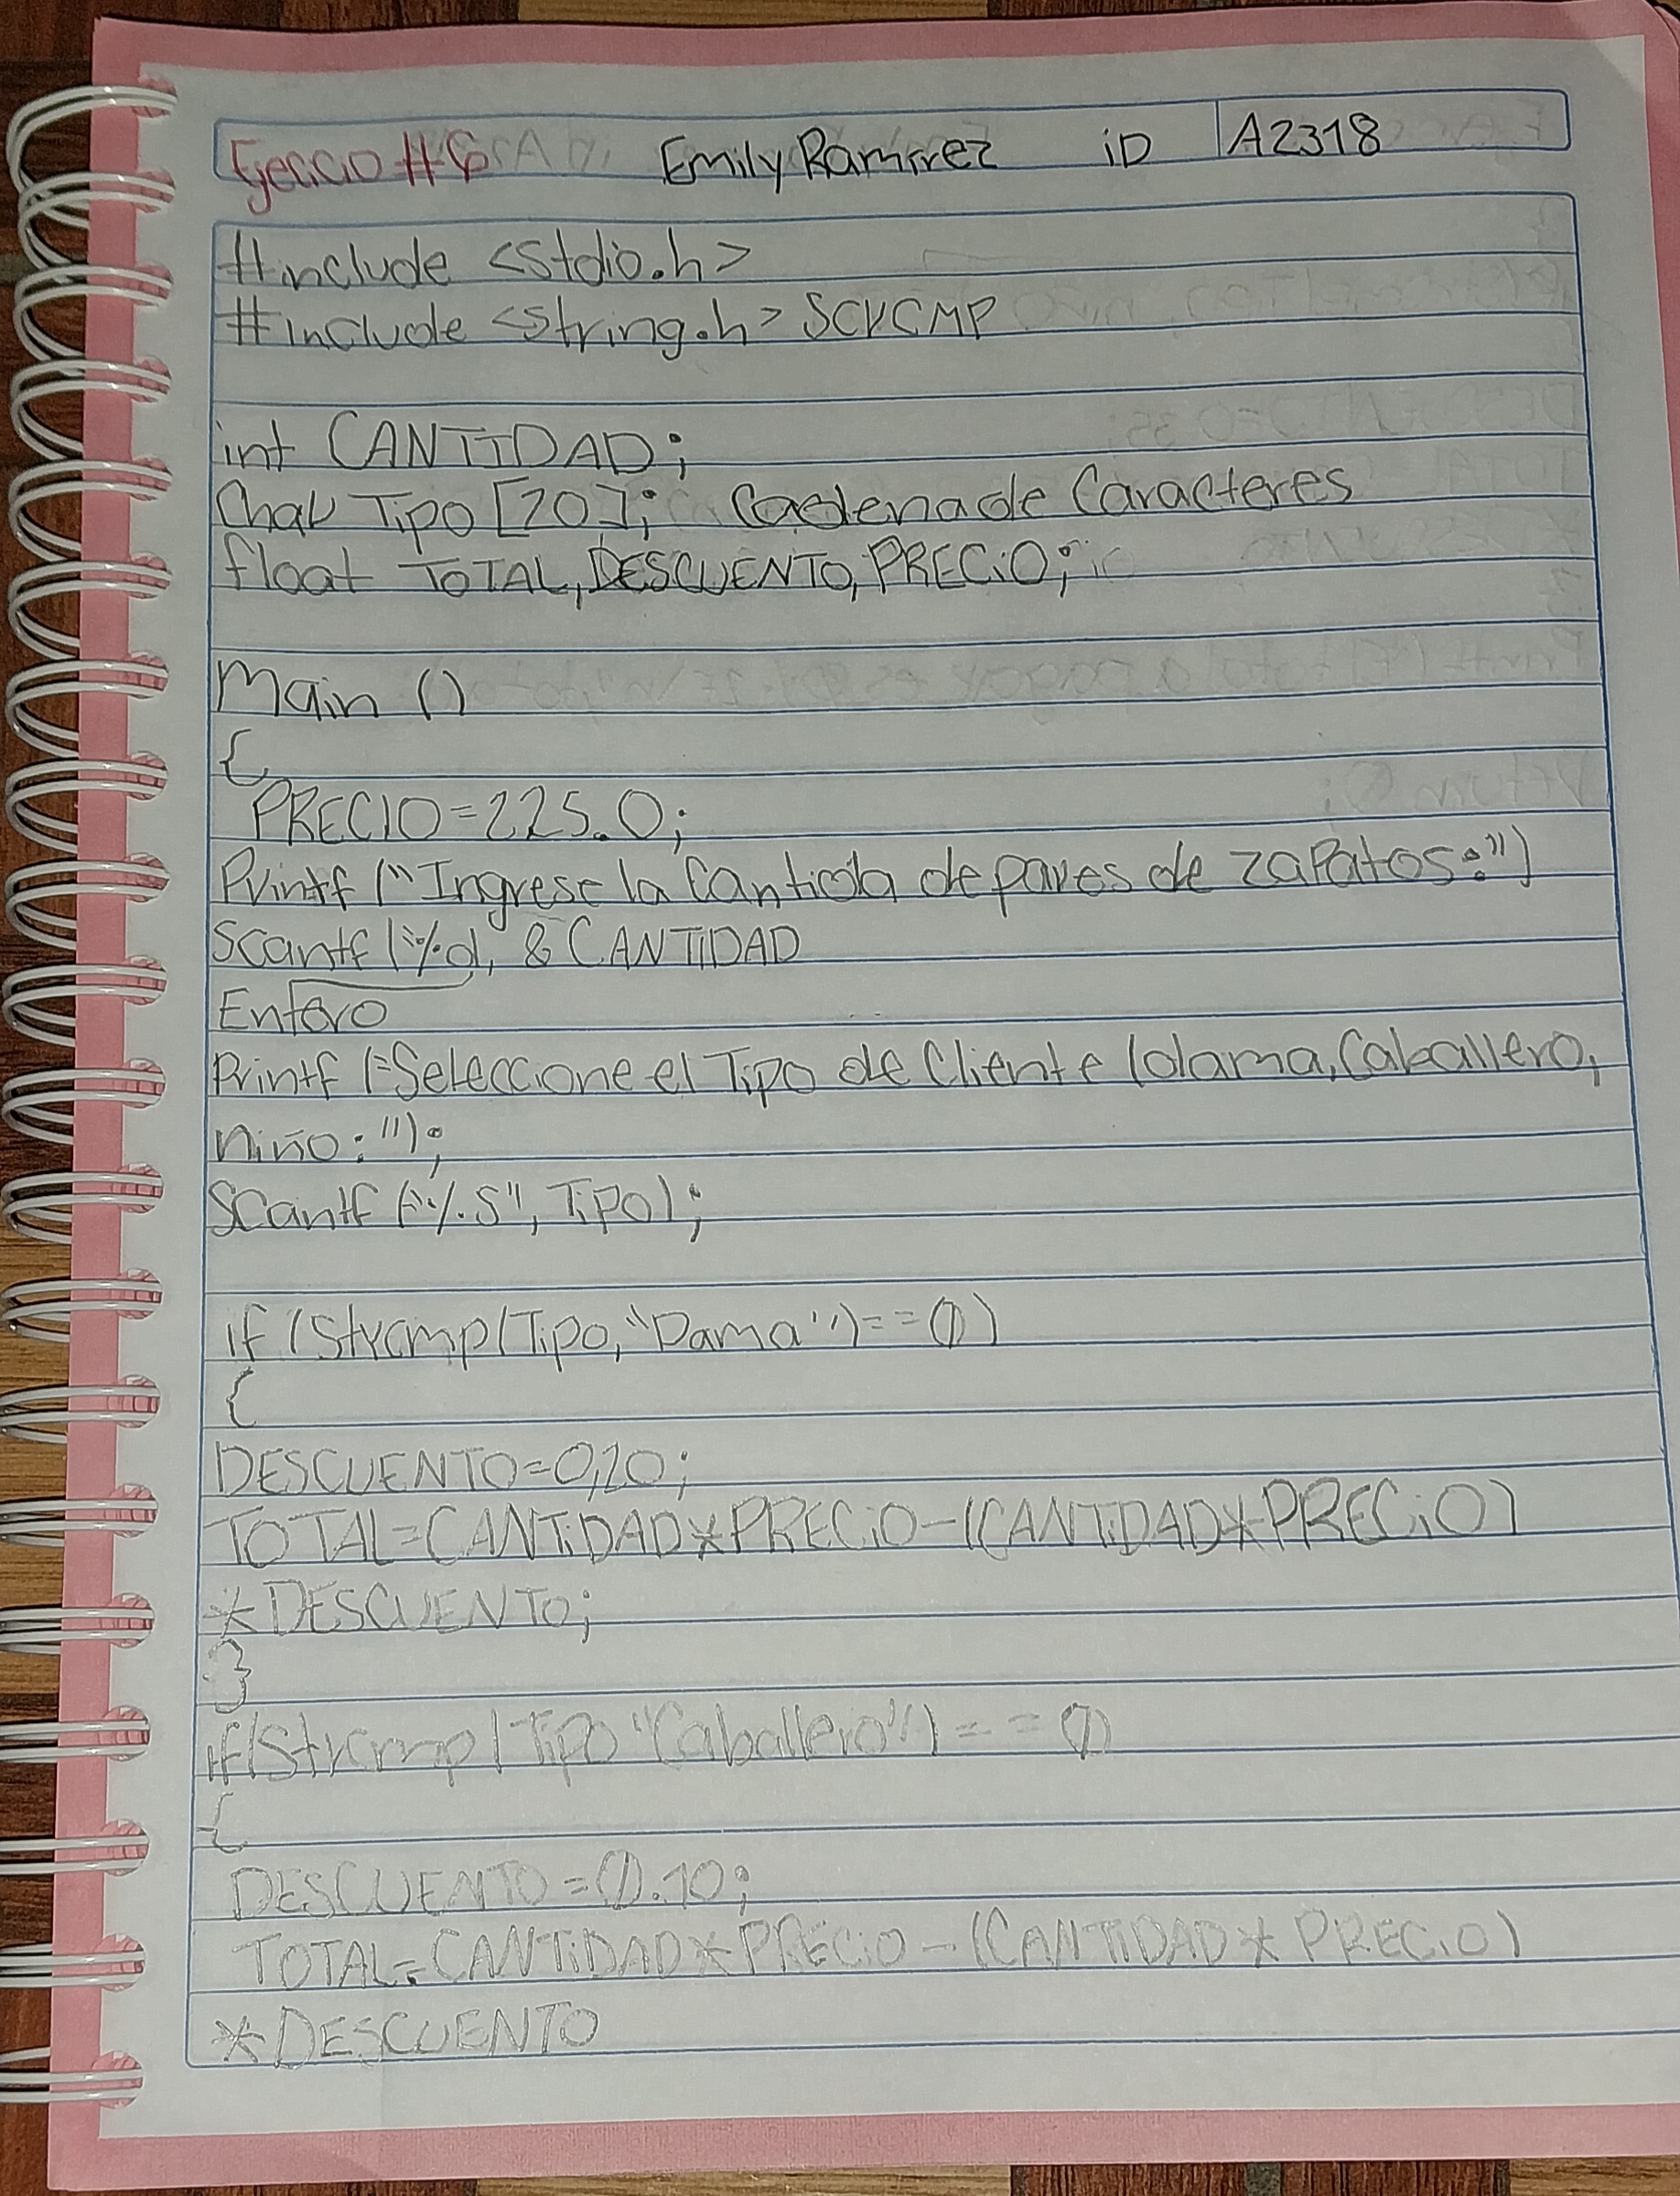 Ejercicio #6 Emily Ramirez iD A2318
#include <stdio.h>
#include <string.h> SCRCMP
int CANTIDAD;
Char Tipo [20]; Cadena de Caracteres
float TOTAL, DESCUENTO, PRECiO;
Main ()
{
PRECIO=225.0;
Printf ("Ingrese la Cantida de pares de zaPatos:")
Scantf ("%d, & CANTIDAD
Entero
Printf ("Seleccione el Tipo de Cliente (dama, Caballero,
niño:");
SCantf ("%s", TiPo);
if (Strcmp(Tipo, "Dama")==0)
{
DESCUENTO=0,20;
TOTAL=CANTiDAD*PRECiO-(CANTiDAD*PRECiO)
*DESCUENTO;
}
if(Strcmp(Tipo "Caballero")==0
{
DESCUENTO=0.10;
TOTAL=CANTiDAD*PRECiO-(CANTIDAD*PRECiO)
*DESCUENTO